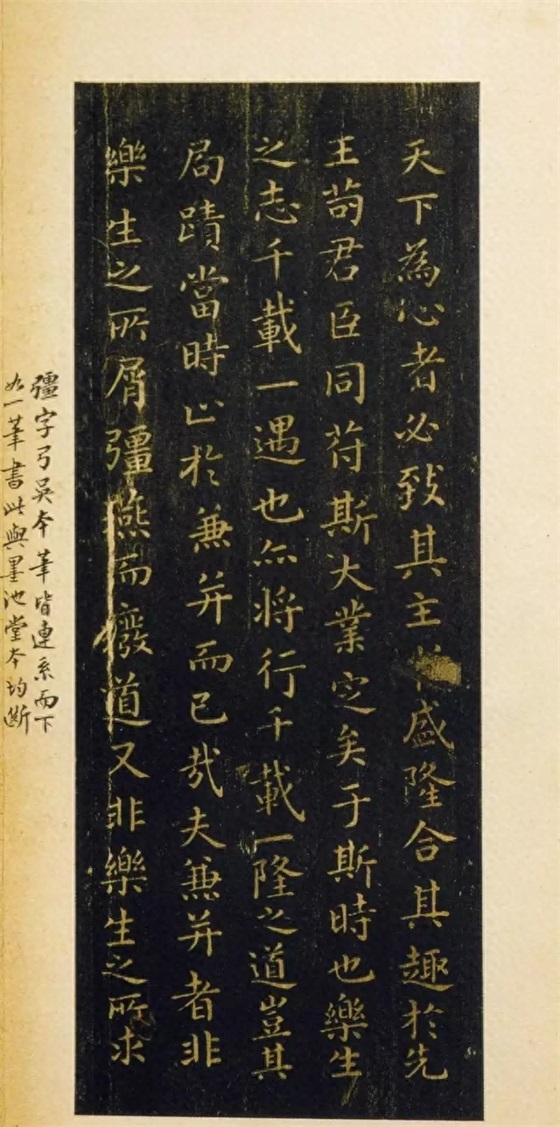 天下為心者必致其主於盛隆合其趣於先
王苟君臣同符斯大業定矣于斯時也樂生
之志千載一遇也亦將行千載一隆之道豈其
局蹟當時止於兼并而已哉夫兼并者非
樂生之所屑彊燕而癈道又非樂生之所求
彊字弓吳本筆皆連系而下
如一筆書此與墨池堂本均斷